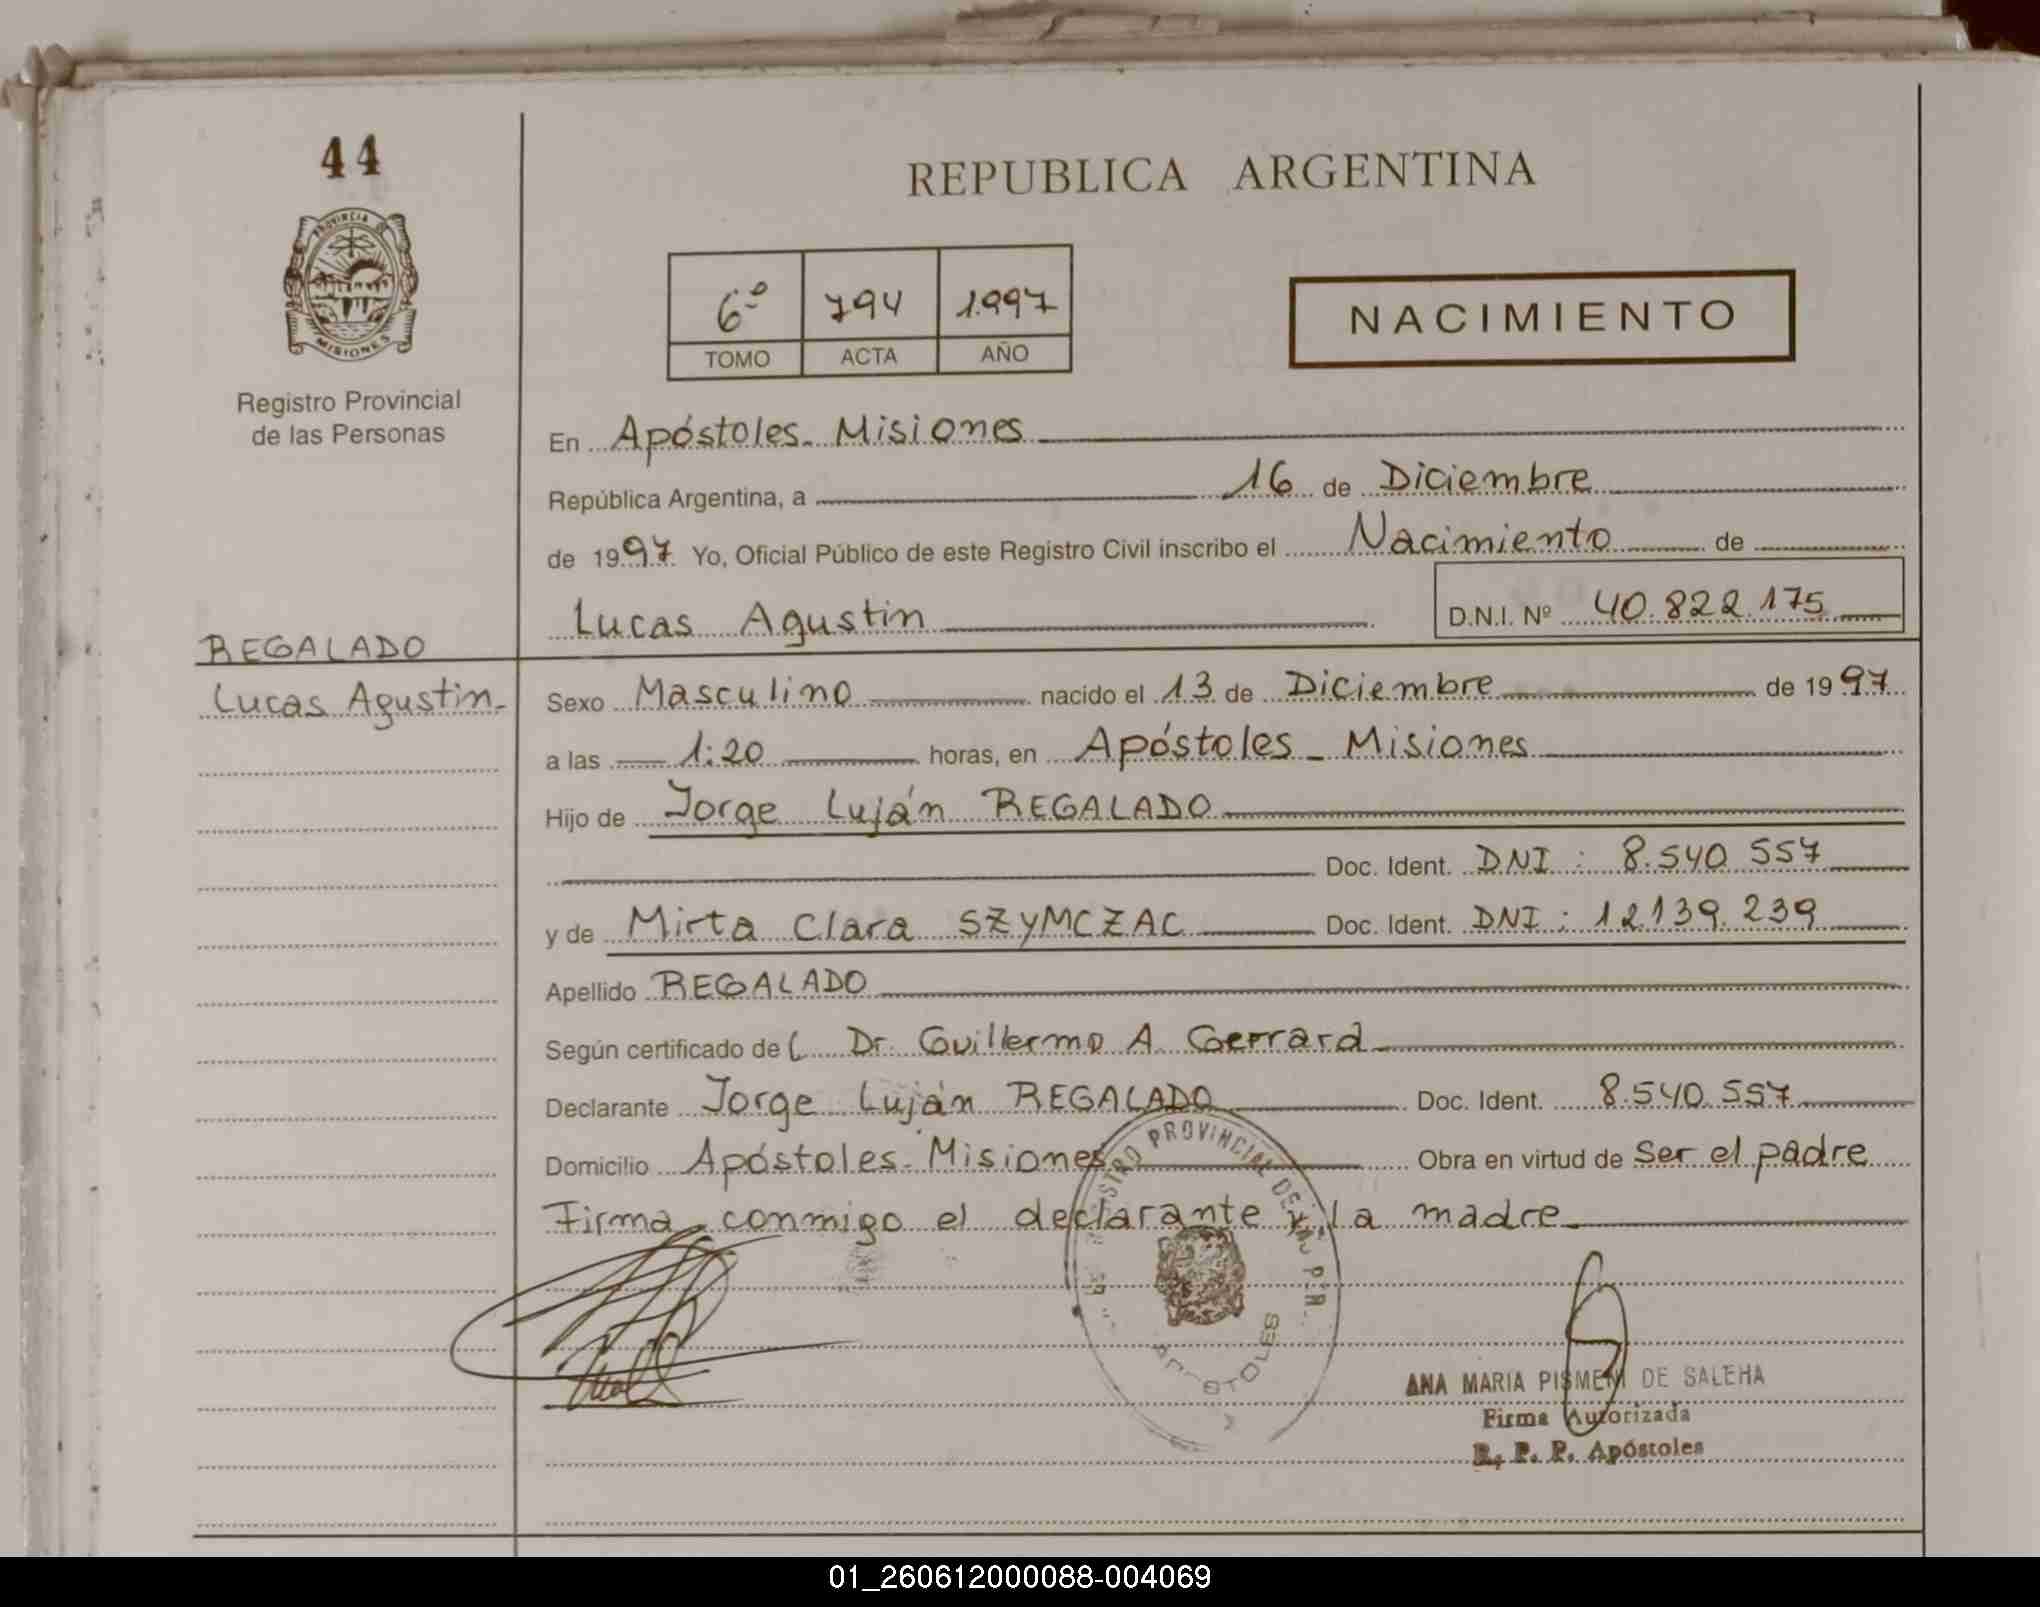 44
REPUBLICA ARGENTINA
PROVINCIA DE
MISIONES
Registro Provincial
de las Personas
6º 794 1.997
TOMO ACTA AÑO
NACIMIENTO
En Apóstoles - Misiones
República Argentina, a 16 de Diciembre
de 1997. Yo, Oficial Público de este Registro Civil inscribo el Nacimiento de
Lucas Agustin D.N.I. Nº 40.822.175
REGALADO
Lucas Agustin-
Sexo Masculino nacido el 13 de Diciembre de 1997
a las 1:20 horas, en Apóstoles - Misiones
Hijo de Jorge Luján REGALADO
Doc. Ident. DNI: 8.540.557
y de Mirta Clara SZYMCZAC Doc. Ident. DNI: 12.139.239
Apellido REGALADO
Según certificado de Dr. Guillermo A. Gerrard
Declarante Jorge Luján REGALADO Doc. Ident. 8.540.557
Domicilio Apóstoles - Misiones Obra en virtud de Ser el padre
Firma conmigo el declarante y la madre
PROVINCIAL DE
ANA MARIA PISMENI DE SALEHA
Firma Autorizada
R. P. P. Apóstoles
01_260612000088-004069